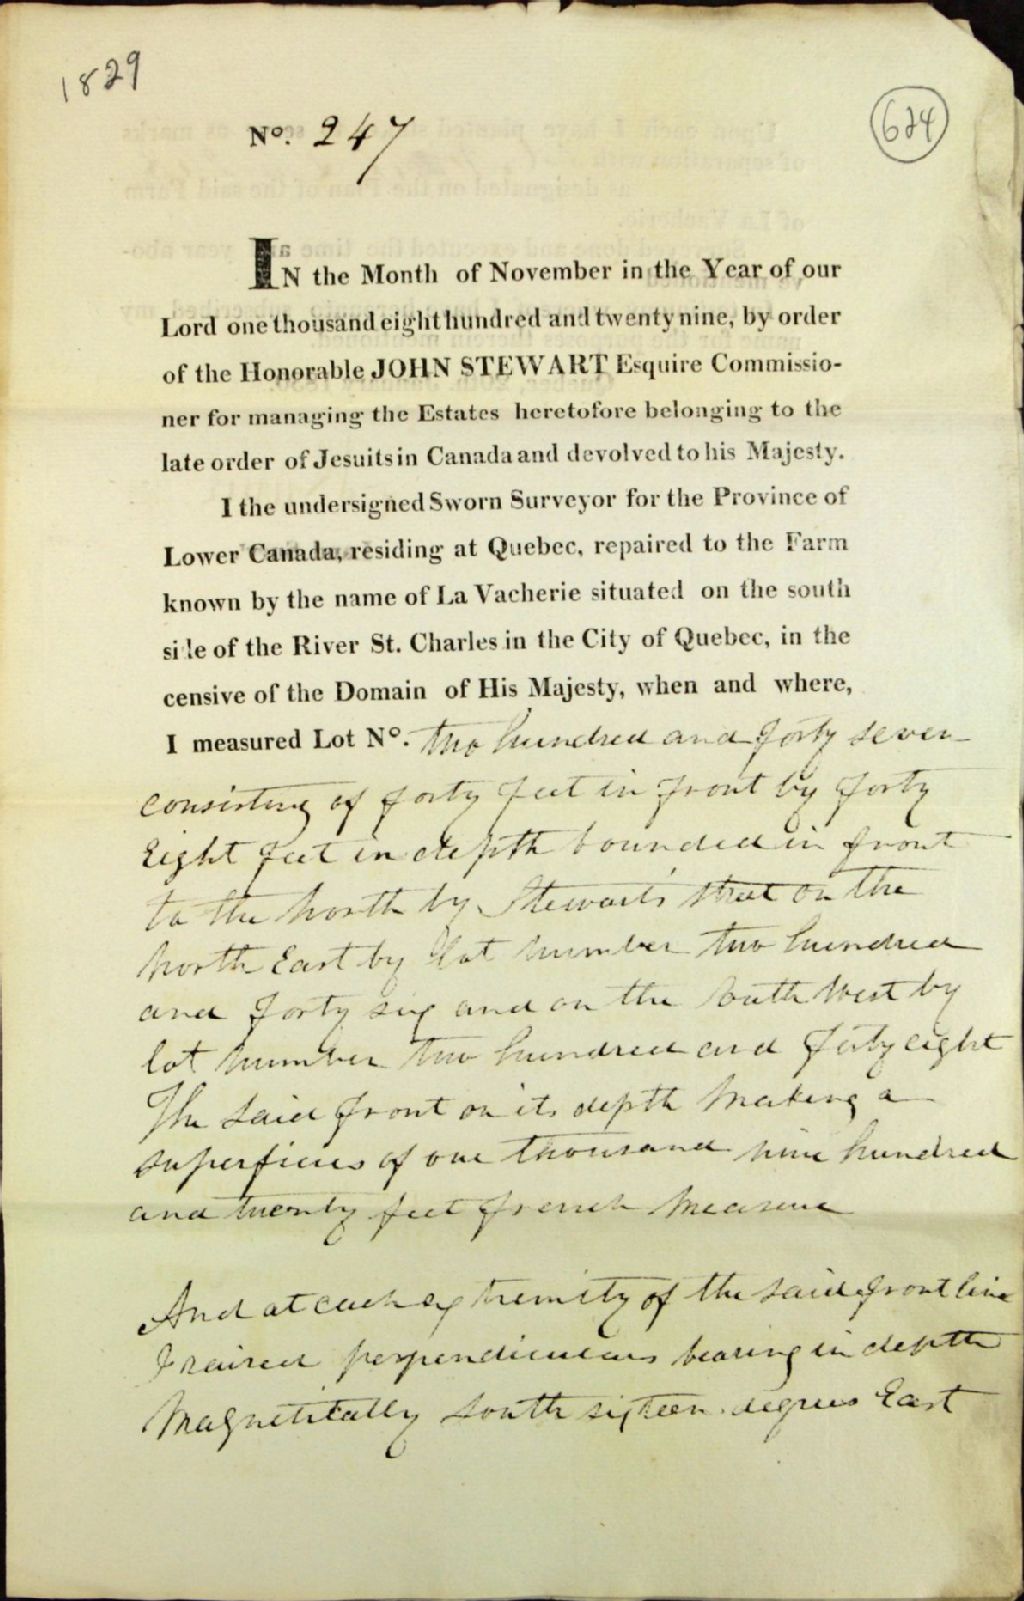 1829
624
No. 247
IN the Month of November in the Year of our
Lord one thousand eight hundred and twenty nine, by order
of the Honorable JOHN STEWART Esquire Commissio-
ner for managing the Estates heretofore belonging to the
late order of Jesuits in Canada and devolved to his Majesty.
I the undersigned Sworn Surveyor for the Province of
Lower Canada, residing at Quebec, repaired to the Farm
known by the name of La Vacherie situated on the south
side of the River St. Charles in the City of Quebec, in the
censive of the Domain of His Majesty, when and where,
I measured Lot No. two hundred and forty seven
consisting of forty feet in front by forty
Eight feet in depth bounded in front
to the North by Stewart's street on the
North East by Lot number two hundred
and forty six and on the South West by
lot number two hundred and forty eight
The said front on its depth Making a
superficies of one thousand nine hundred
and twenty feet french Measure
And at each extremity of the said front line
I raised perpendiculars bearing in depth
Magnetically South sixteen degrees East